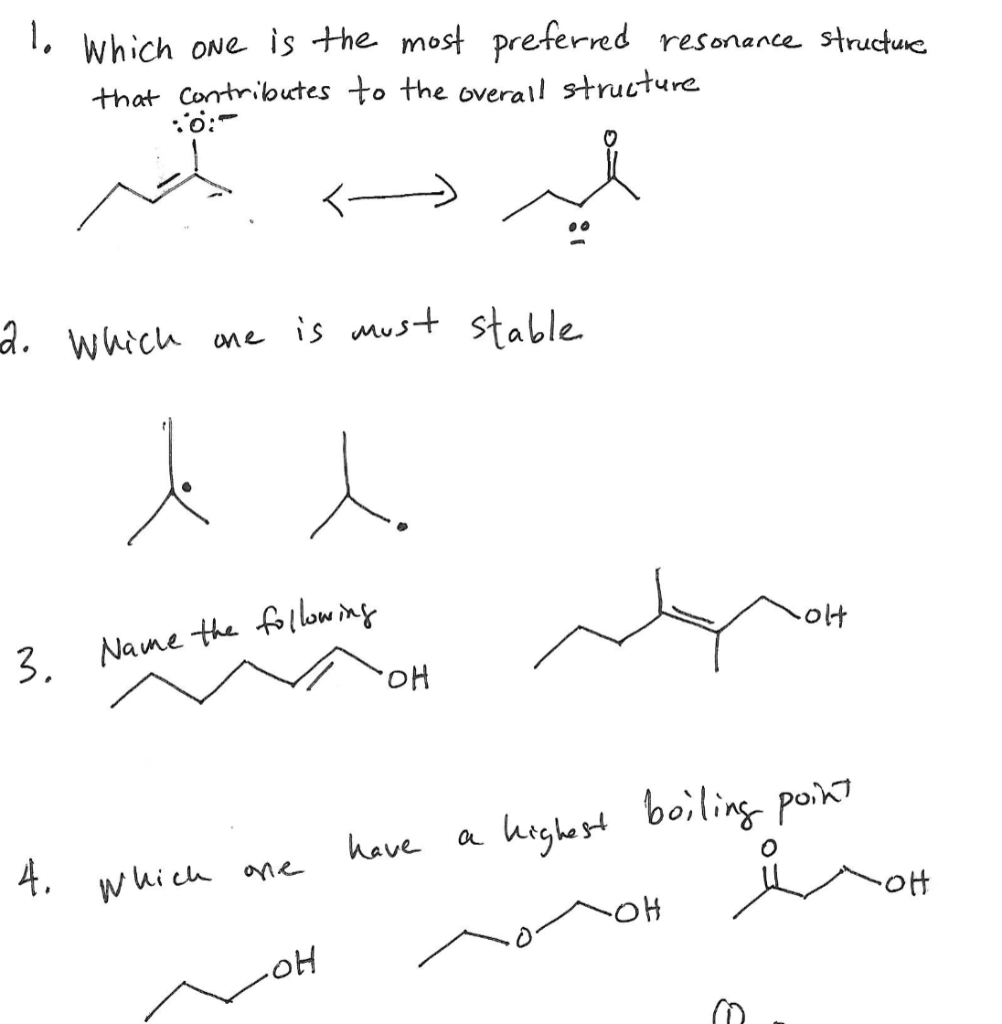 1. Which one is the most preferred resonance structure
that contributes to the overall structure
:Ö:⁻
O
2. Which one is must stable
3. Name the following
OH
OH
4. Which one have a highest boiling point
O
OH
O
OH
OH